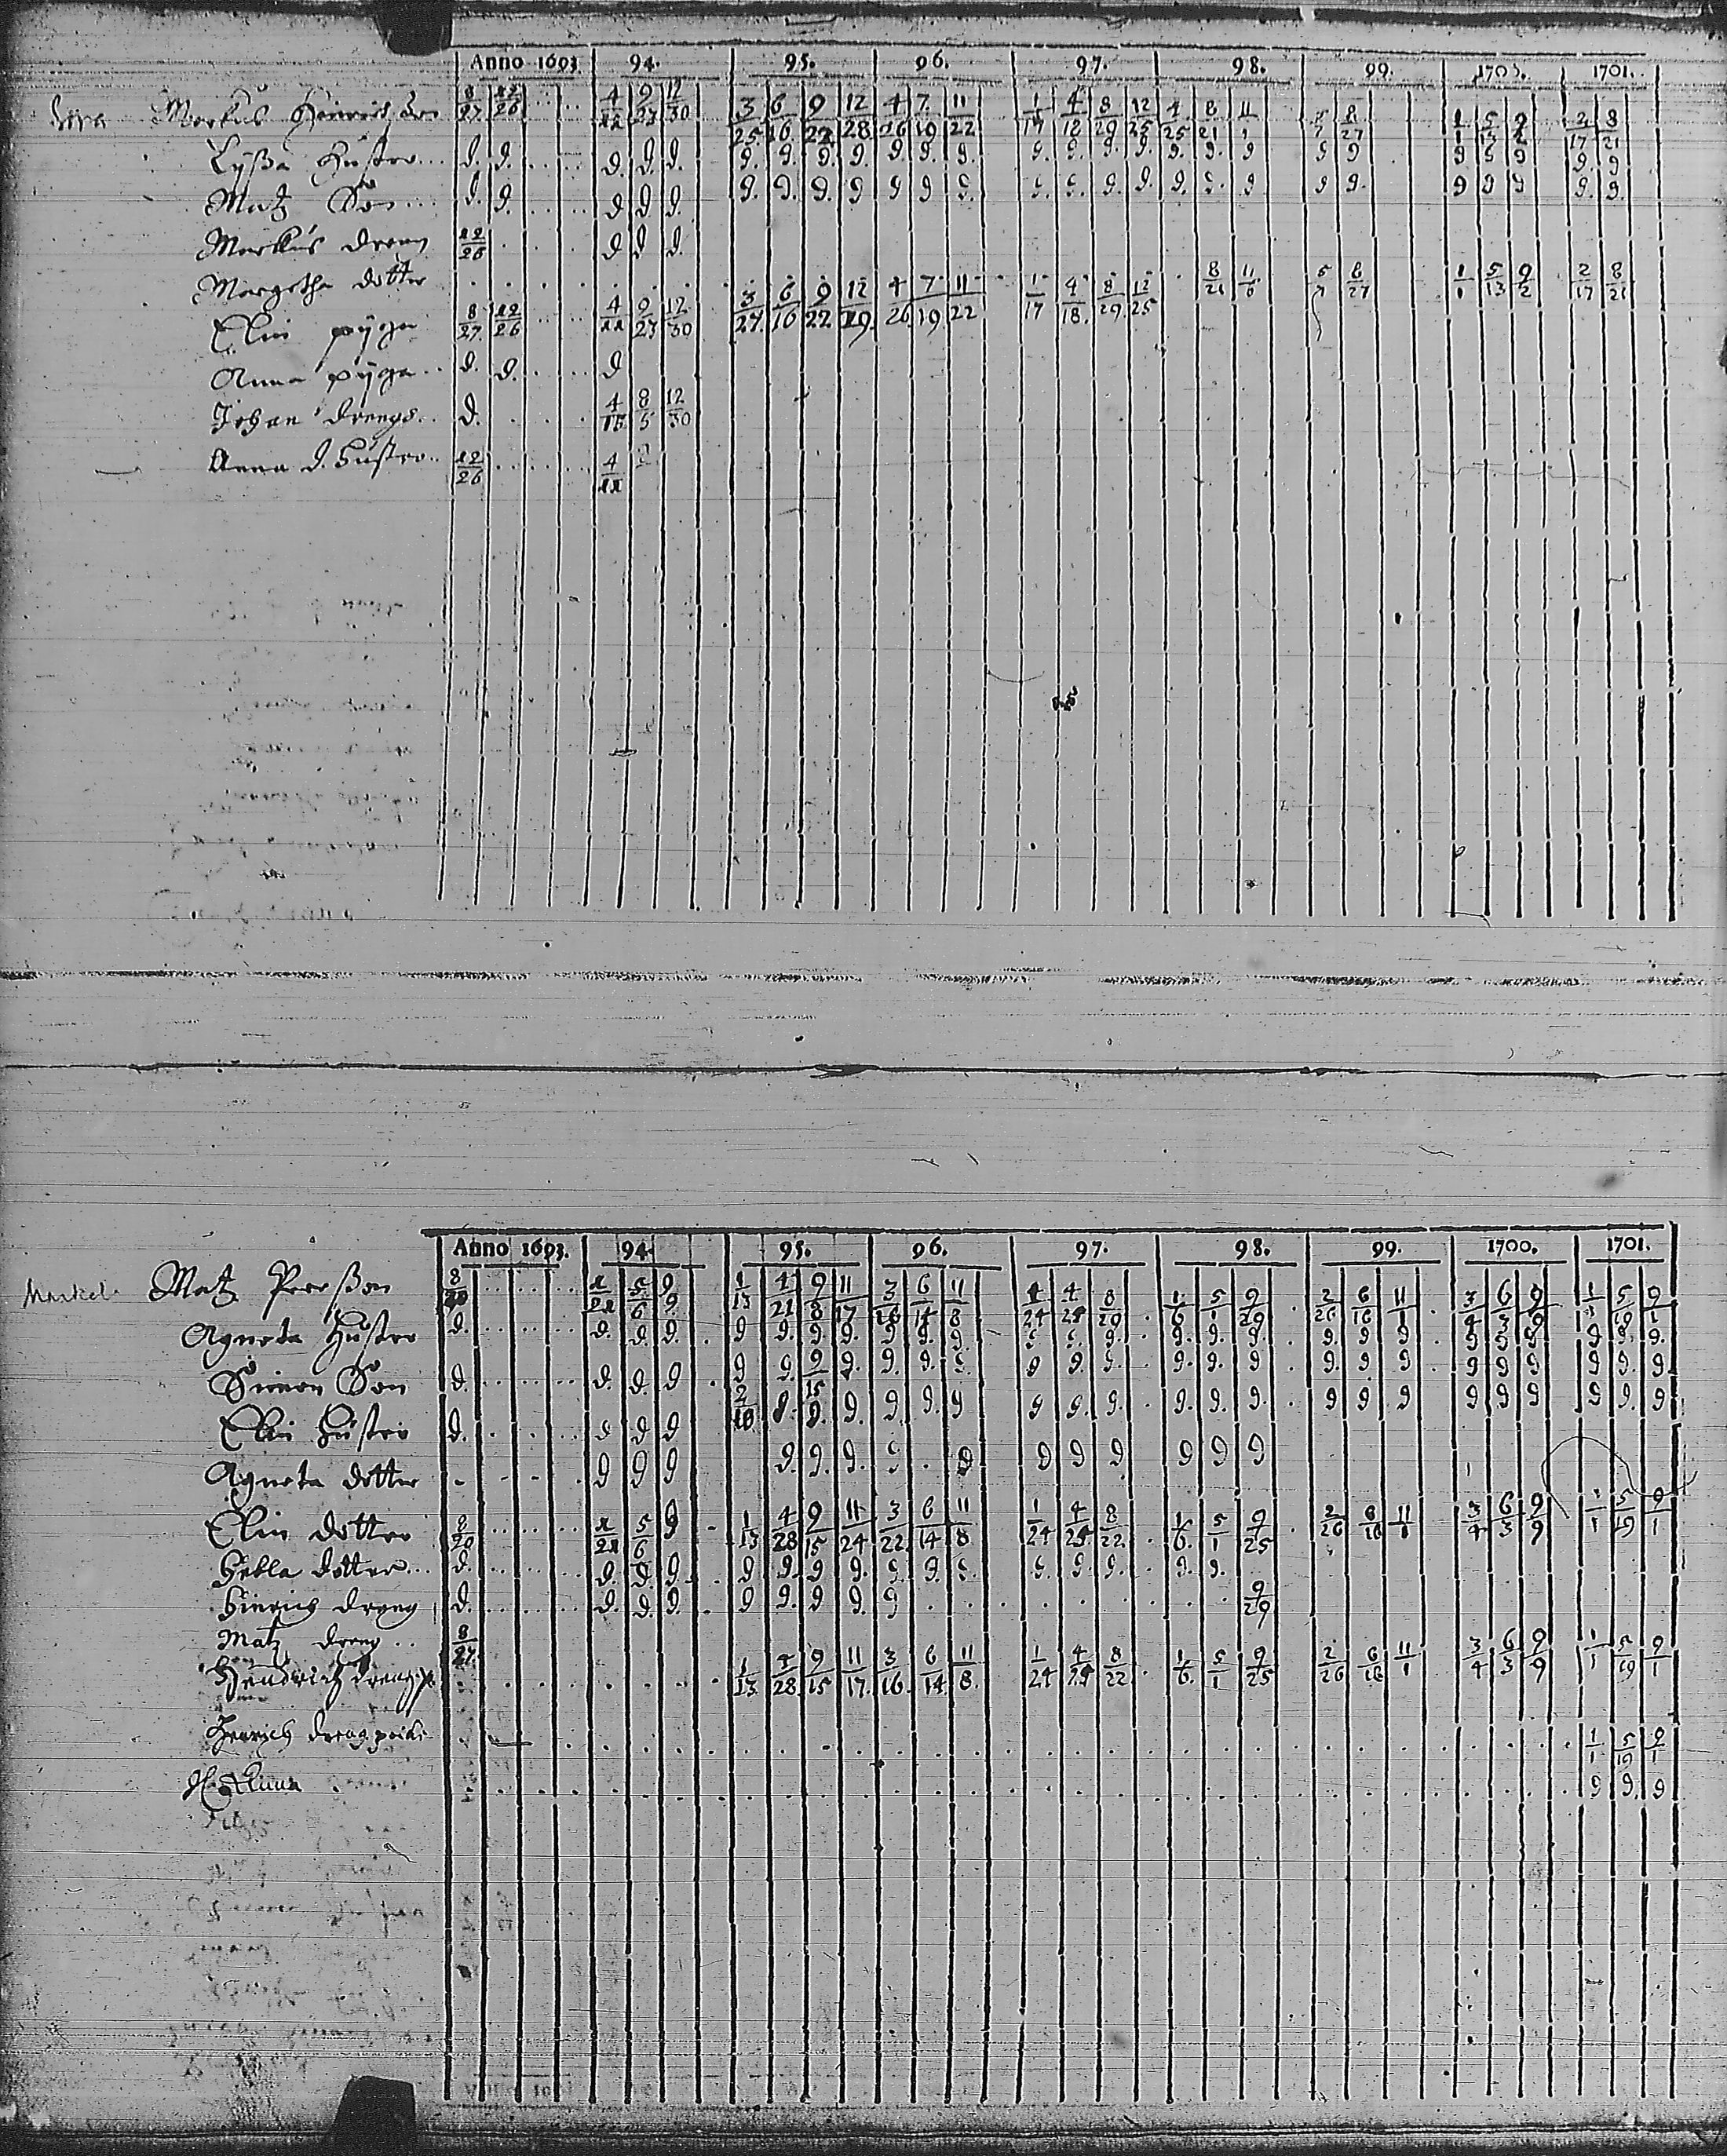 Anno 1693. 94. 95. 96. 97. 98. 99. 1700. 1701.
Markus Hinrichsson 8/27 12/26 4/22 9/23 12/30 3/25 6/16 9/22 12/28 4/26 7/19 11/22 1/17 4/18 8/29 12/25 4/25 8/21 5/7 8/27 1/1 5/13 9/2 2/17 8/21
Lyßa Hustro... d. d. d. d. d. 9. 9. 9. 9. 9. 9. 9. 9. 9. 9. 9. 9. 9. 9 9 9 9 9 9 9. 9
Matz Son... d. d. d d d. 9. 9. 9. 9 9 9 9. 9. 9. 9. 9. 9. 9. 9 9 9. 9 9 9 9. 9.
Markus dreng 12/26 d d d.
Margetha dotter 8/21 11/6 5/7 8/27 1/1 5/13 9/2 2/17 8/21
Elin pyga 8/27 12/26 4/22 9/23 12/30 3/27 6/16 9/22 12/29 4/26 7/19 11/22 1/17 4/18 8/29 12/25
Anna pyga.. d. d. d
Johan drengs.. d. 4/15 8/5 12/30
Anna d. Hustro.. 12/26 4/22
Anno 1693. 94. 95. 96. 97. 98. 99. 1700. 1701.
Markel Matz Peerßon 8/20 1/21 5/6 9/9 1/13 4/21 9/8 11/17 3/16 6/14 11/8 1/24 4/24 8/29 1/6 5/1 9/29 2/26 6/16 11/1 3/4 6/3 9/9 1/1 5/19 9/1
Agneta Hustro d. d. d. d. 9 9. 9. 9. 9 9. 9. 9 9. 9. 9. 9. 9. 9. 9 9 9 9 9 9 9. 9.
Simon Son d. d. d. 9 9 9. 9/15 9. 9. 9. 9. 9 9. 9. 9. 9. 9 9. 9 9 9 9 9 9 9. 9
Elin Hustro d. d d d 2/10 9. 9. 9. 9. 9. 9 9 9. 9. 9. 9. 9. 9 9 9 9 9 9 9 9. 9
Agneta dotter 9 9 9 9. 9. 9. 9 9 9 9 9 9 9 9
Elin dotter 8/20 1/21 5/6 9 1/13 4/28 9/15 11/24 3/22 6/14 11/8 1/24 4/25 8/22 1/6 5/1 9/25 2/26 6/16 11/1 3/4 6/3 9/9 1/1 5/19 9/1
Hebla dotter... d. d. d. 9. 9 9. 9 9. 9. 9. 9. 9 9. 9. 9. 9.
Hinrich dreng d. d. d. 9. 9 9. 9 9. 9 9/29
Matz dreng.. 8/27
Hendrich dreng 1/13 4/28 9/15 11/17 3/16 6/14 11/8 1/24 4/24 8/22 1/6 5/1 9/25 2/26 6/16 11/1 3/4 6/3 9/9 1/1 5/19 9/1
Henrich dreng 1/1 5/19 9/1
Anna 9 9. 9